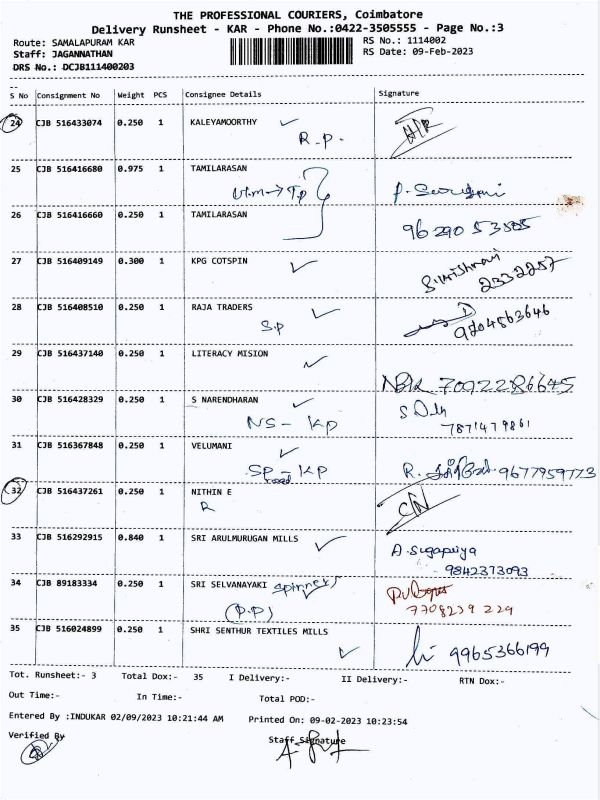 THE PROFESSIONAL COURIERS, Coimbatore
Delivery Runsheet - KAR - Phone No.:0422-3505555 - Page No.:3
Route: SAMALAPURAM KAR RS No.: 1114002
Staff: JAGANNATHAN RS Date: 09-Feb-2023
DRS No.: DCJB111400203
S No Consignment No Weight PCS Consignee Details Signature
24 CJB 516433074 0.250 1 KALEYAMOORTHY
R.P.
25 CJB 516416680 0.975 1 TAMILARASAN
26 CJB 516416660 0.250 1 TAMILARASAN
96290 53505
27 CJB 516409149 0.300 1 KPG COTSPIN
2332257
28 CJB 516408510 0.250 1 RAJA TRADERS
S.P
9204563646
29 CJB 516437140 0.250 1 LITERACY MISION
7092286645
30 CJB 516428329 0.250 1 S NARENDHARAN
NS - KP
7871479861
31 CJB 516367848 0.250 1 VELUMANI
SP road - KP
9677959773
32 CJB 516437261 0.250 1 NITHIN E
R
33 CJB 516292915 0.840 1 SRI ARULMURUGAN MILLS
A. Sugapriya
9842373093
34 CJB 89183334 0.250 1 SRI SELVANAYAKI
(P.P)
7708239 229
35 CJB 516024899 0.250 1 SHRI SENTHUR TEXTILES MILLS
9965366199
Tot. Runsheet:- 3 Total Dox:- 35 I Delivery:- II Delivery:- RTN Dox:-
Out Time:- In Time:- Total POD:-
Entered By :INDUKAR 02/09/2023 10:21:44 AM Printed On: 09-02-2023 10:23:54
Verified By Staff Signature